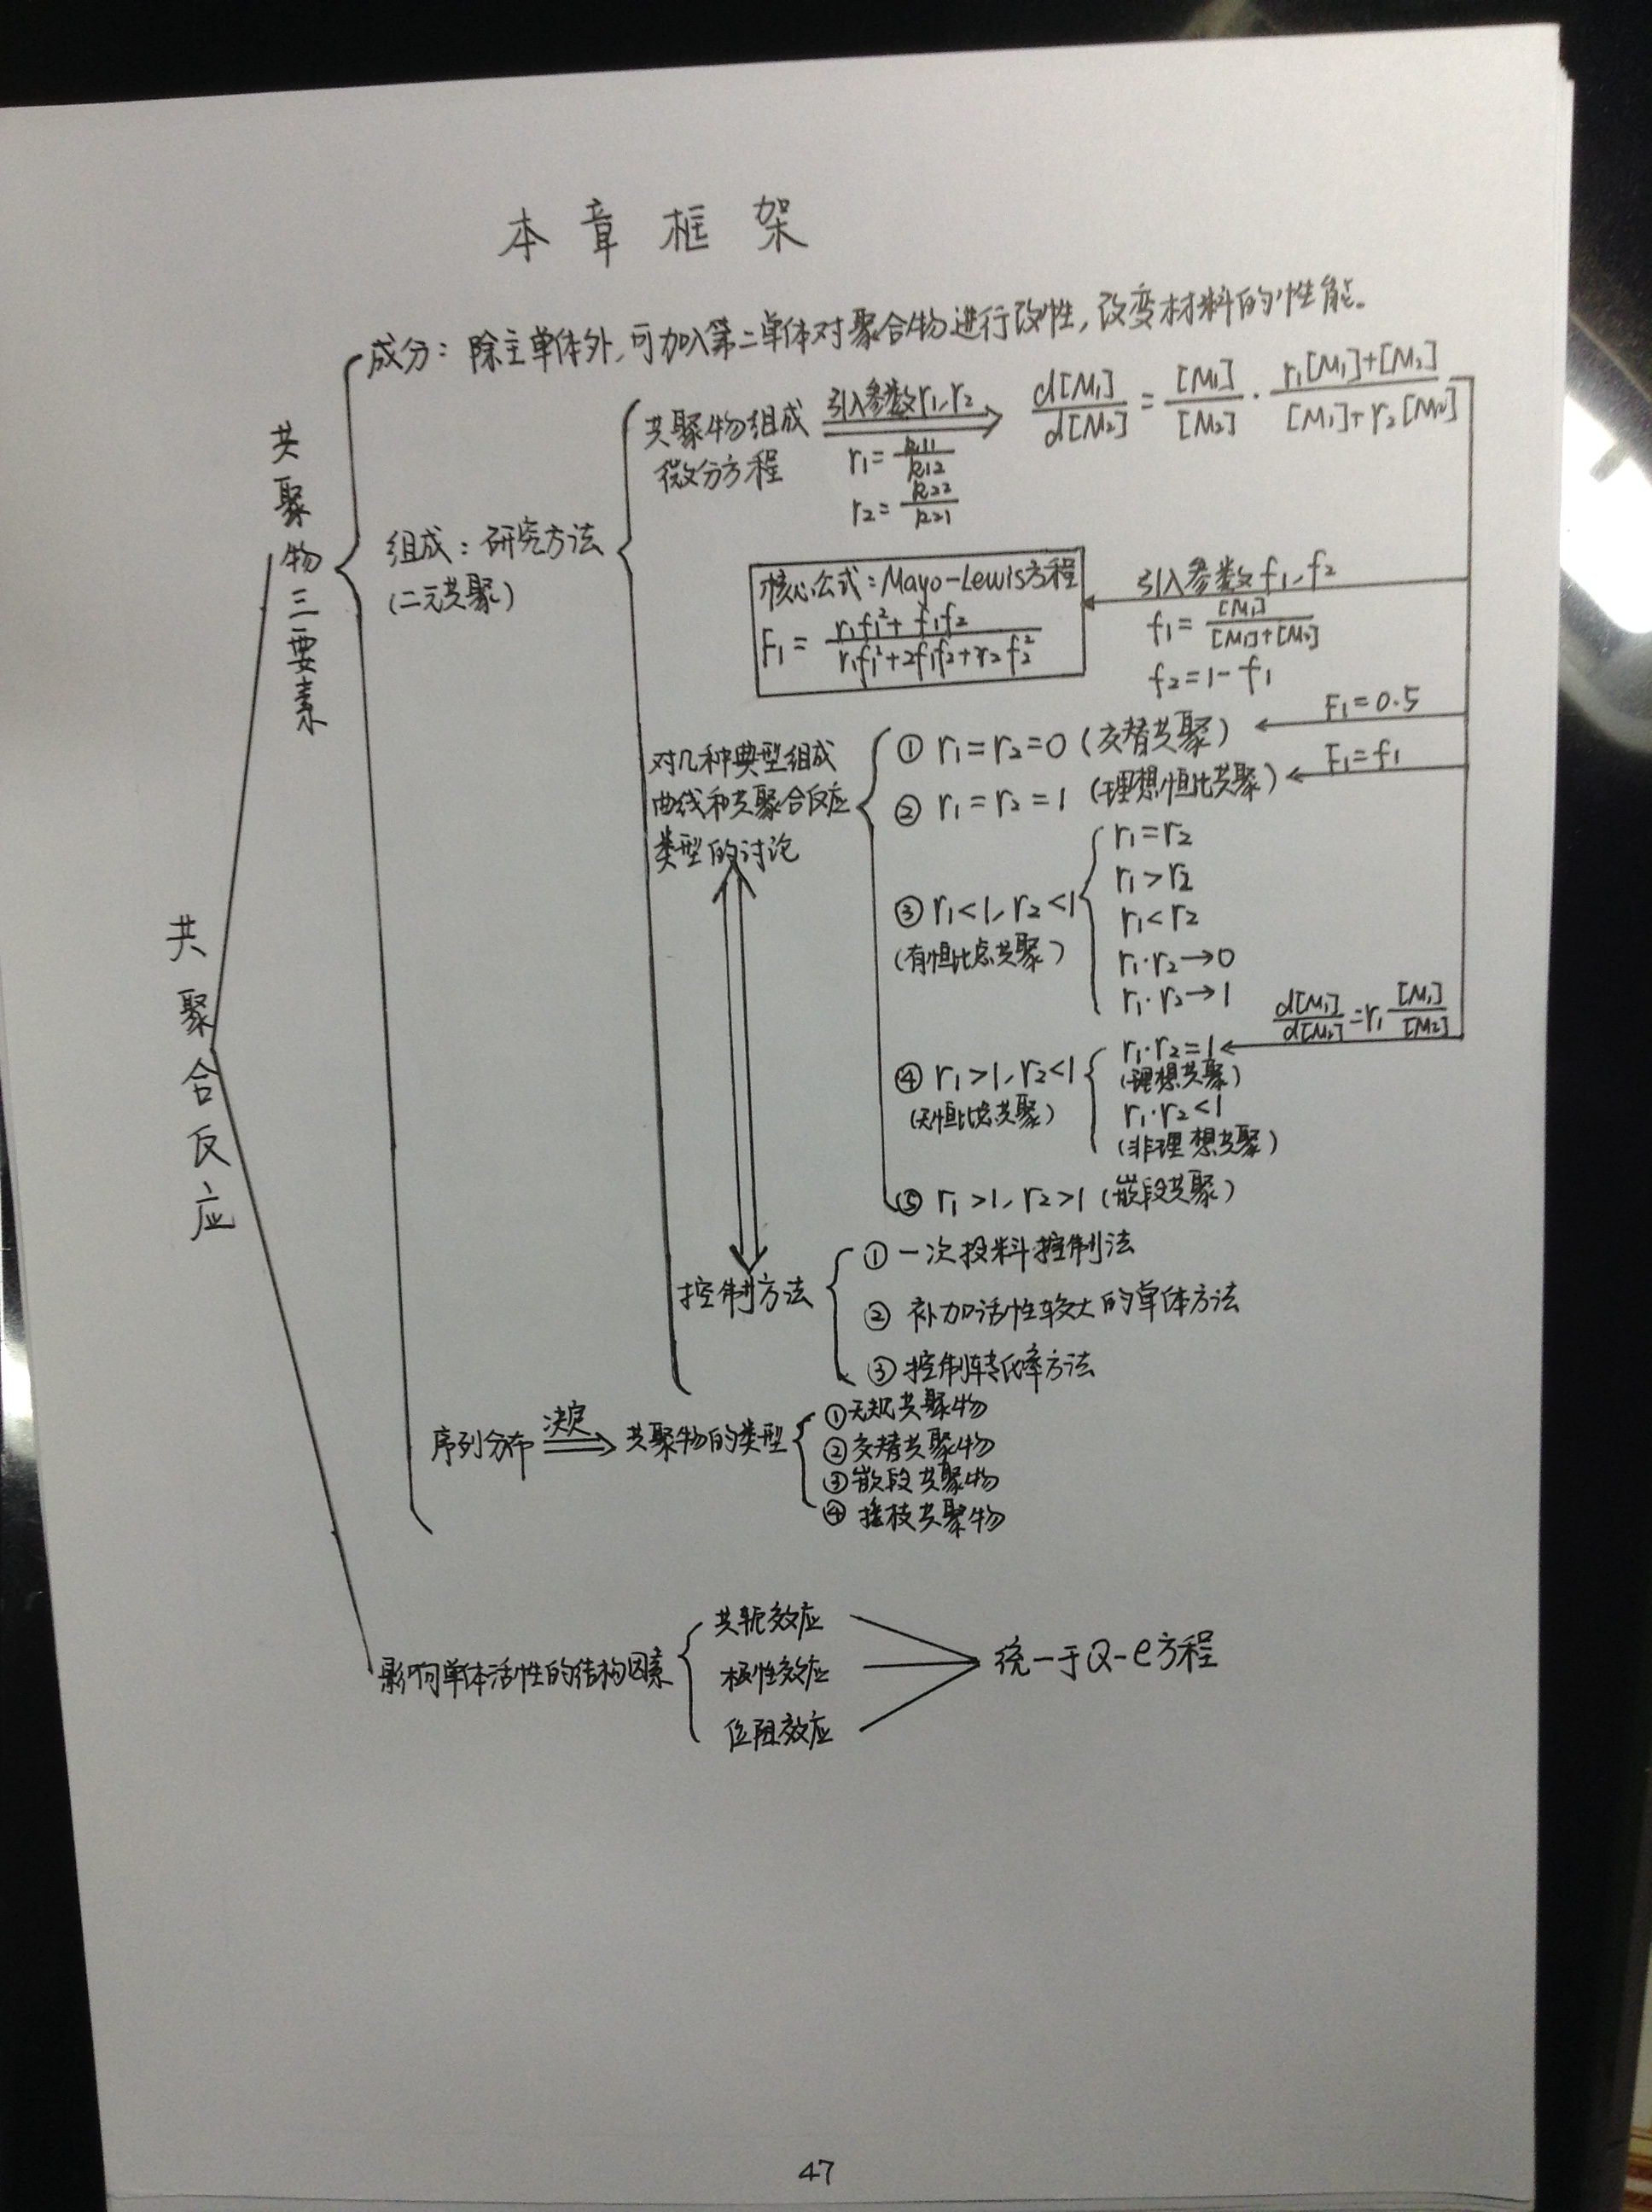 本章框架
共聚合反应
共聚物三要素
成分：除主单体外，可加入第二单体对聚合物进行改性，改变材料的性能。
组成：研究方法
(二元共聚)
共聚物组成
微分方程
引入参数r₁、r₂
r₁=k₁₁/k₁₂
r₂=k₂₂/k₂₁
d[M₁]/d[M₂]=[M₁]/[M₂]·(r₁[M₁]+[M₂])/([M₁]+r₂[M₂])
核心公式：Mayo-Lewis方程
F₁=(r₁f₁²+f₁f₂)/(r₁f₁²+2f₁f₂+r₂f₂²)
引入参数f₁、f₂
f₁=[M₁]/([M₁]+[M₂])
f₂=1-f₁
对几种典型组成
曲线和共聚合反应
类型的讨论
① r₁=r₂=0(交替共聚)
F₁=0.5
② r₁=r₂=1(理想恒比共聚)
F₁=f₁
③ r₁<1、r₂<1
(有恒比点共聚)
r₁=r₂
r₁>r₂
r₁<r₂
r₁·r₂→0
r₁·r₂→1
④ r₁>1、r₂<1
(无恒比点共聚)
r₁·r₂=1
(理想共聚)
d[M₁]/d[M₂]=r₁[M₁]/[M₂]
r₁·r₂<1
(非理想共聚)
⑤ r₁>1、r₂>1(嵌段共聚)
控制方法
① 一次投料控制法
② 补加活性较大的单体方法
③ 控制转化率方法
序列分布
决定
共聚物的类型
① 无规共聚物
② 交替共聚物
③ 嵌段共聚物
④ 接枝共聚物
影响单体活性的结构因素
共轭效应
极性效应
位阻效应
统一于Q-e方程
47